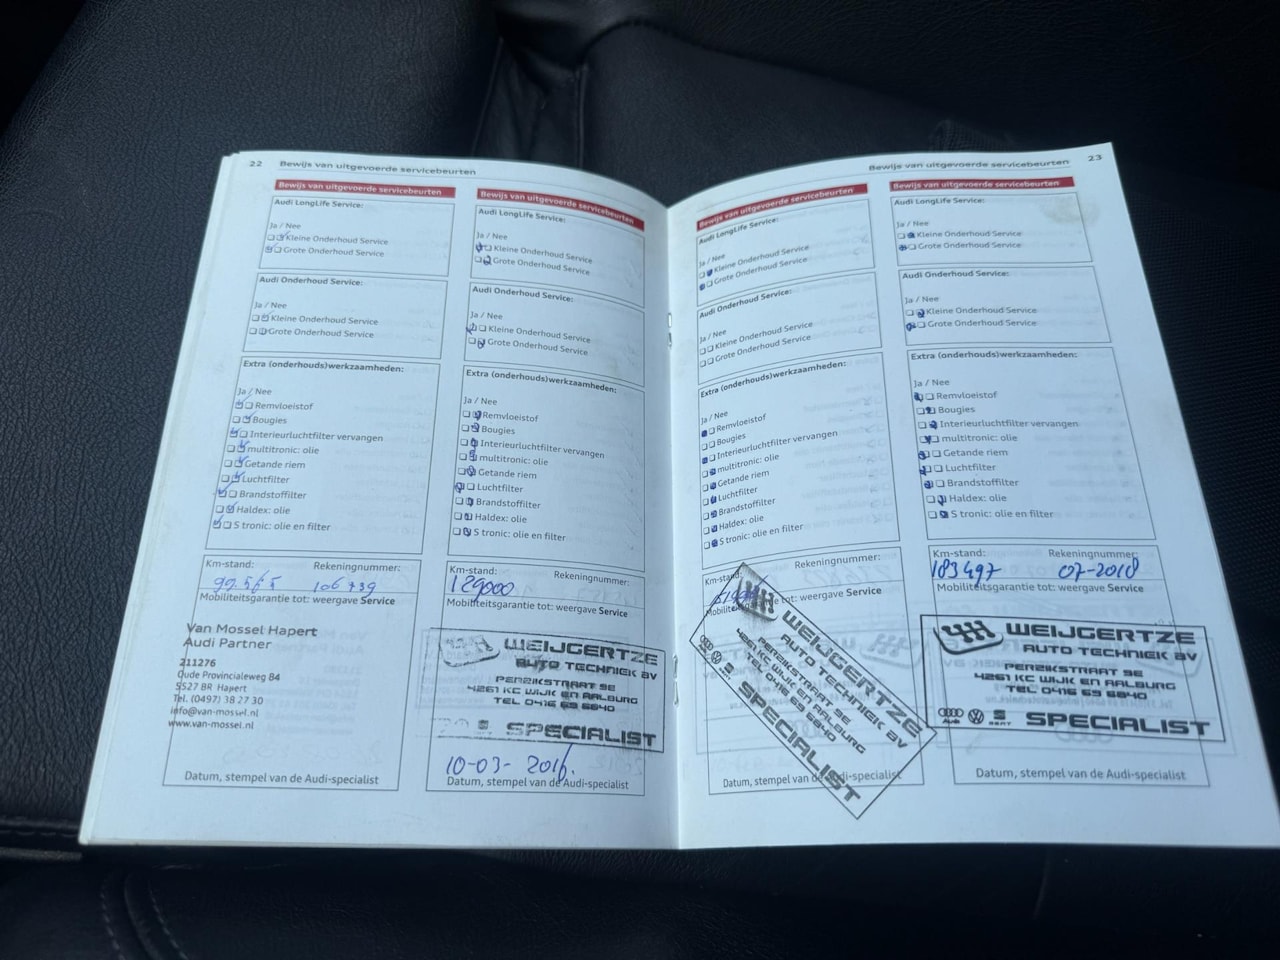 22 Bewijs van uitgevoerde servicebeurten
Bewijs van uitgevoerde servicebeurten
Audi LongLife Service:
Ja / Nee
Kleine Onderhoud Service
Grote Onderhoud Service
Audi Onderhoud Service:
Ja / Nee
Kleine Onderhoud Service
Grote Onderhoud Service
Extra (onderhouds)werkzaamheden:
Ja / Nee
Remvloeistof
Bougies
Interieurluchtfilter vervangen
multitronic: olie
Getande riem
Luchtfilter
Brandstoffilter
Haldex: olie
S tronic: olie en filter
Km-stand: Rekeningnummer:
99.565 106739
Mobiliteitsgarantie tot: weergave Service
Van Mossel Hapert
Audi Partner
211276
Oude Provincialeweg 84
5527 BR Hapert
Tel. (0497) 38 27 30
info@van-mossel.nl
www.van-mossel.nl
Datum, stempel van de Audi-specialist
Bewijs van uitgevoerde servicebeurten
Audi LongLife Service:
Ja / Nee
Kleine Onderhoud Service
Grote Onderhoud Service
Audi Onderhoud Service:
Ja / Nee
Kleine Onderhoud Service
Grote Onderhoud Service
Extra (onderhouds)werkzaamheden:
Ja / Nee
Remvloeistof
Bougies
Interieurluchtfilter vervangen
multitronic: olie
Getande riem
Luchtfilter
Brandstoffilter
Haldex: olie
S tronic: olie en filter
Km-stand: Rekeningnummer:
129000
Mobiliteitsgarantie tot: weergave Service
WEIJGERTZE
AUTO TECHNIEK BV
PERZIKSTRAAT 9E
4261 KC WIJK EN AALBURG
TEL 0416 69 6840
SPECIALIST
10-03-2016.
Datum, stempel van de Audi-specialist
Bewijs van uitgevoerde servicebeurten 23
Bewijs van uitgevoerde servicebeurten
Audi LongLife Service:
Ja / Nee
Kleine Onderhoud Service
Grote Onderhoud Service
Audi Onderhoud Service:
Ja / Nee
Kleine Onderhoud Service
Grote Onderhoud Service
Extra (onderhouds)werkzaamheden:
Ja / Nee
Remvloeistof
Bougies
Interieurluchtfilter vervangen
multitronic: olie
Getande riem
Luchtfilter
Brandstoffilter
Haldex: olie
S tronic: olie en filter
Km-stand: Rekeningnummer:
tot: weergave Service
WEIJGERTZE
AUTO TECHNIEK BV
PERZIKSTRAAT 9E
4261 KC WIJK EN AALBURG
TEL 0416 69 6840
SPECIALIST
Datum, stempel van de Audi-specialist
Bewijs van uitgevoerde servicebeurten
Audi LongLife Service:
Ja / Nee
Kleine Onderhoud Service
Grote Onderhoud Service
Audi Onderhoud Service:
Ja / Nee
Kleine Onderhoud Service
Grote Onderhoud Service
Extra (onderhouds)werkzaamheden:
Ja / Nee
Remvloeistof
Bougies
Interieurluchtfilter vervangen
multitronic: olie
Getande riem
Luchtfilter
Brandstoffilter
Haldex: olie
S tronic: olie en filter
Km-stand: Rekeningnummer:
183497 07-2018
Mobiliteitsgarantie tot: weergave Service
WEIJGERTZE
AUTO TECHNIEK BV
PERZIKSTRAAT 9E
4261 KC WIJK EN AALBURG
TEL 0416 69 6840
Audi SEAT SPECIALIST
Datum, stempel van de Audi-specialist